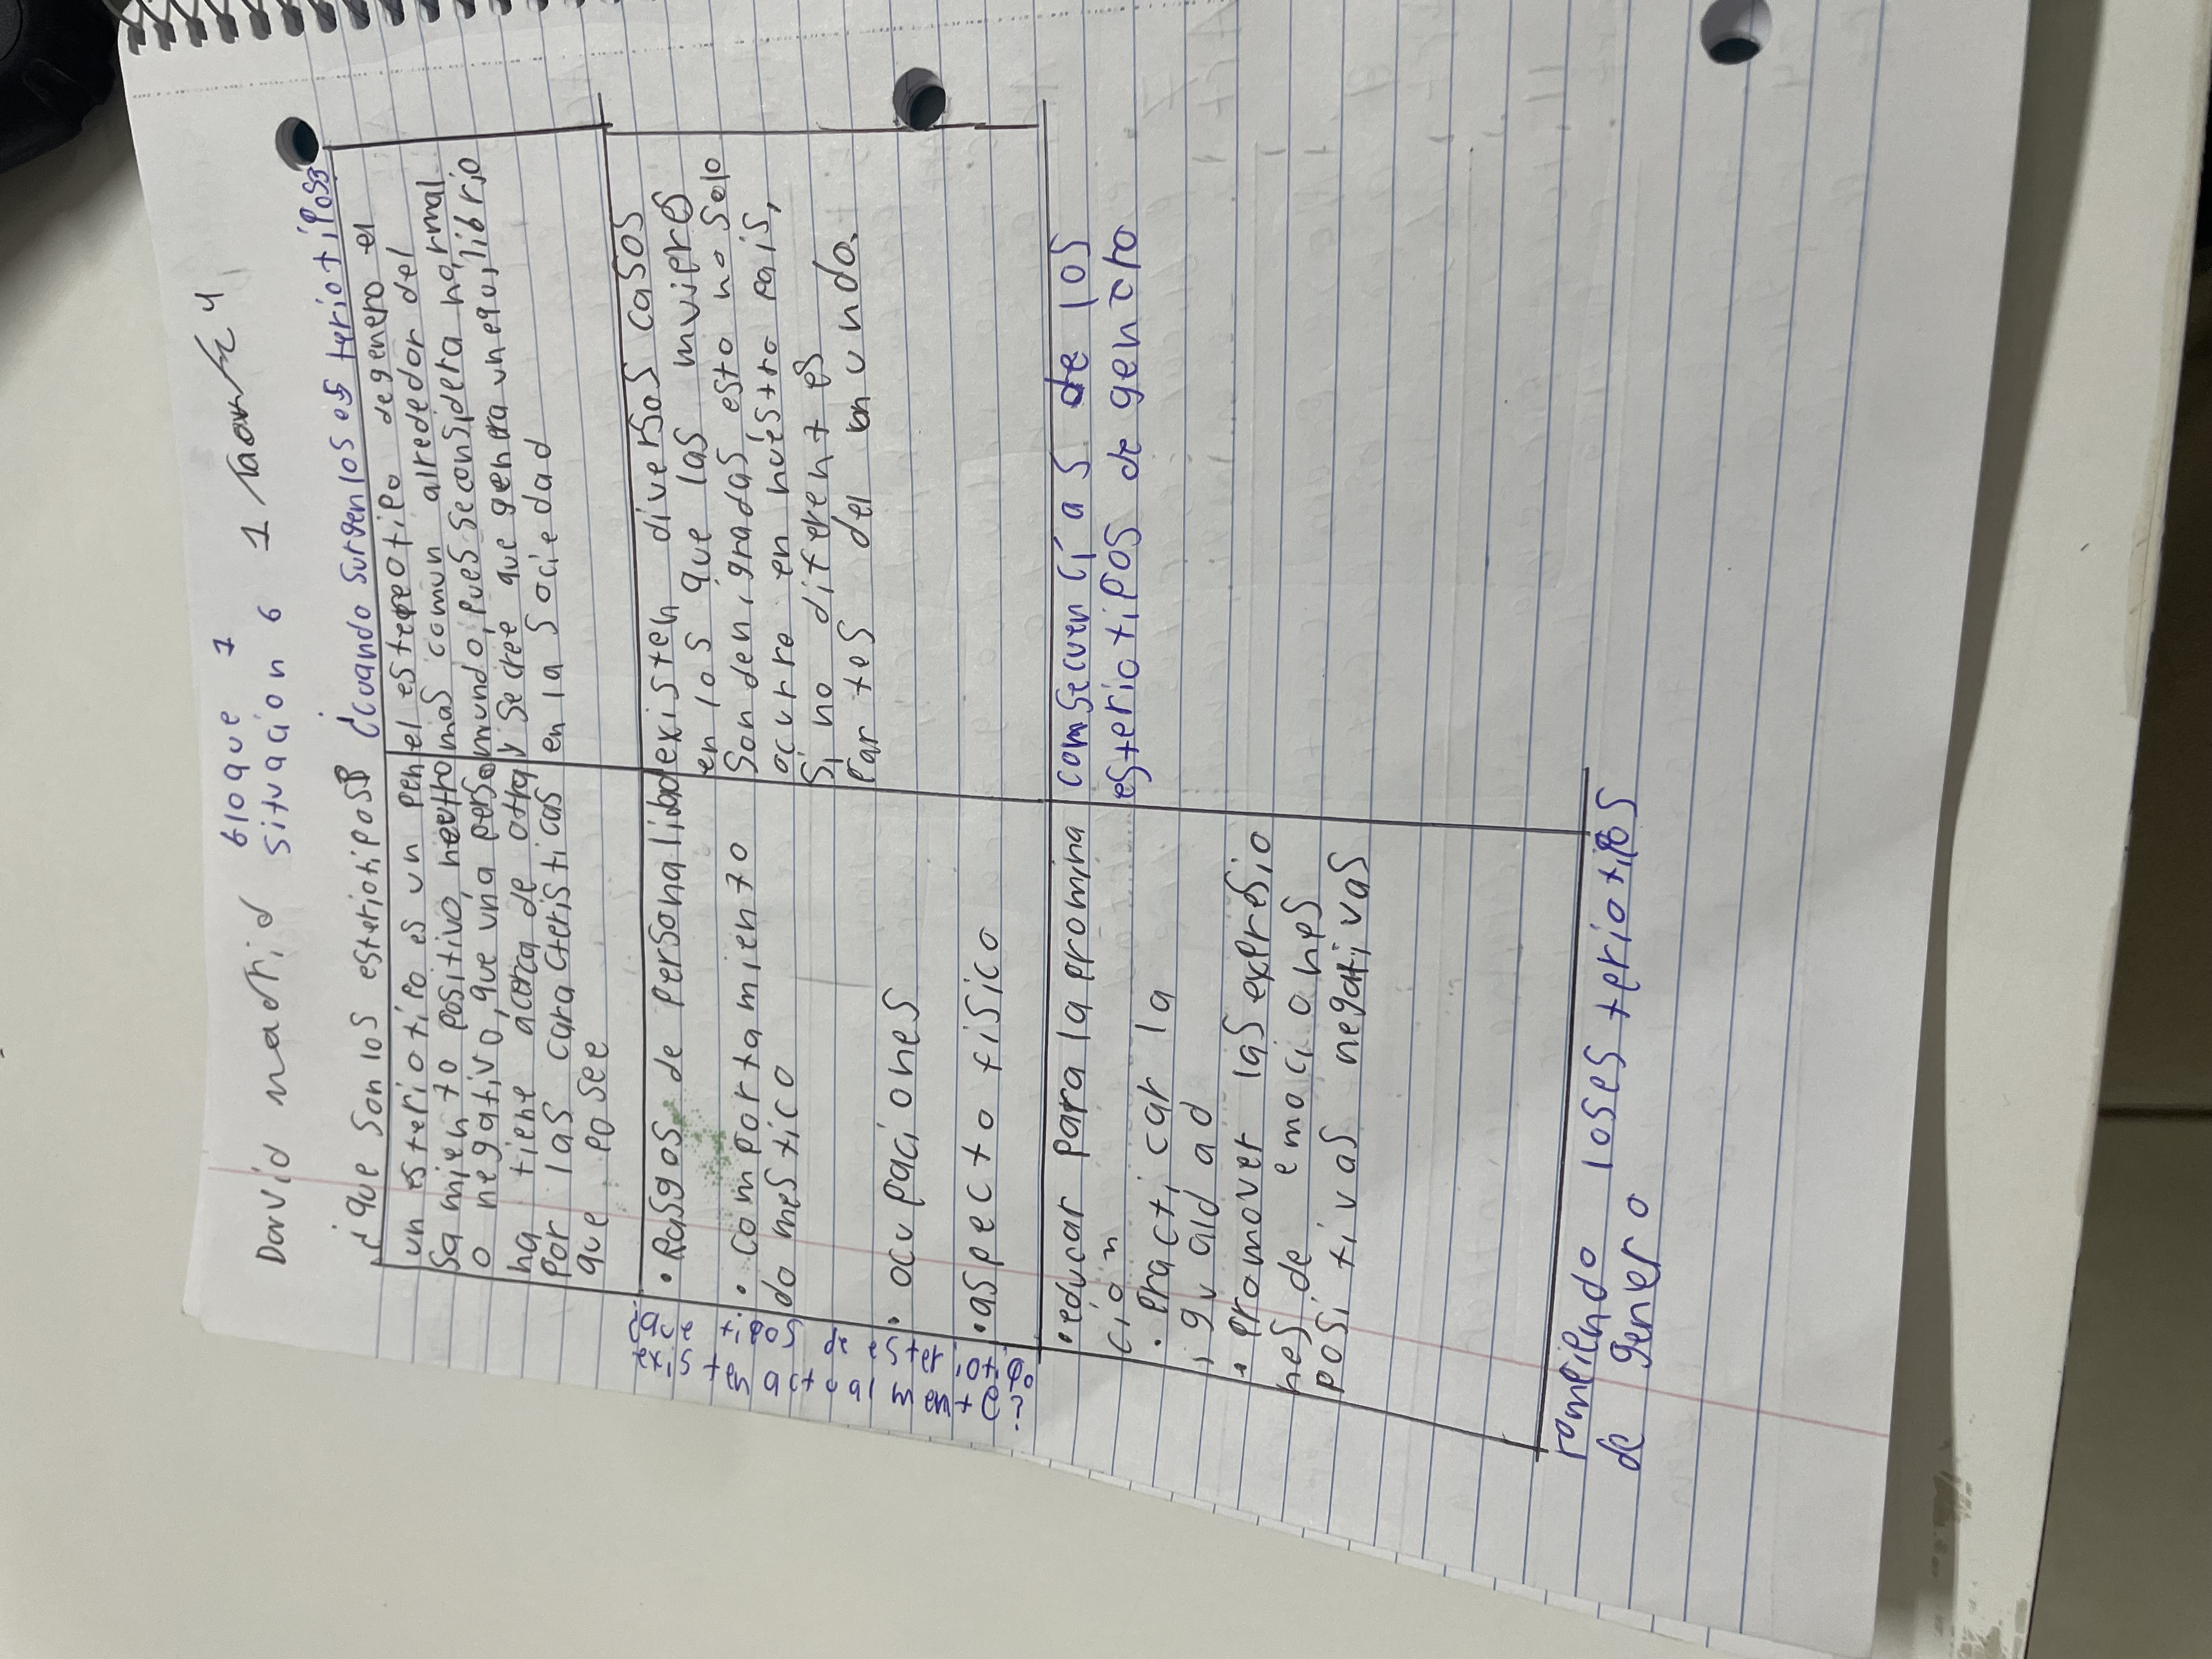 David madrid bloque 7
situacion 6 1
¿que son los esteriotipos? ¿cuando surgen los esteriotipos?
un esteriotipo es un pen
samiento positivo, neutro
o negativo, que una perso
na tiene acerca de otra
por las caracteristicas
que posee
el estereotipo de genero el
mas comun alrededor del
mundo, pues se considera normal
y se cree que genera un equilibrio
en la sociedad
• Rasgos de personalidad
• comportamiento
domestico
• ocupaciones
• aspecto fisico
existen diversos casos
en los que las mujeres
son denigradas esto no solo
ocurre en nuestro pais,
si no diferentes
partes del mundo.
•educar para la promina
ción
• practicar la
igualdad
• promover las expresio
nes de emociones
positivas negativas
comsecuencias de los
esteriotipos de genero
rompiendo los esteriotipos
de genero